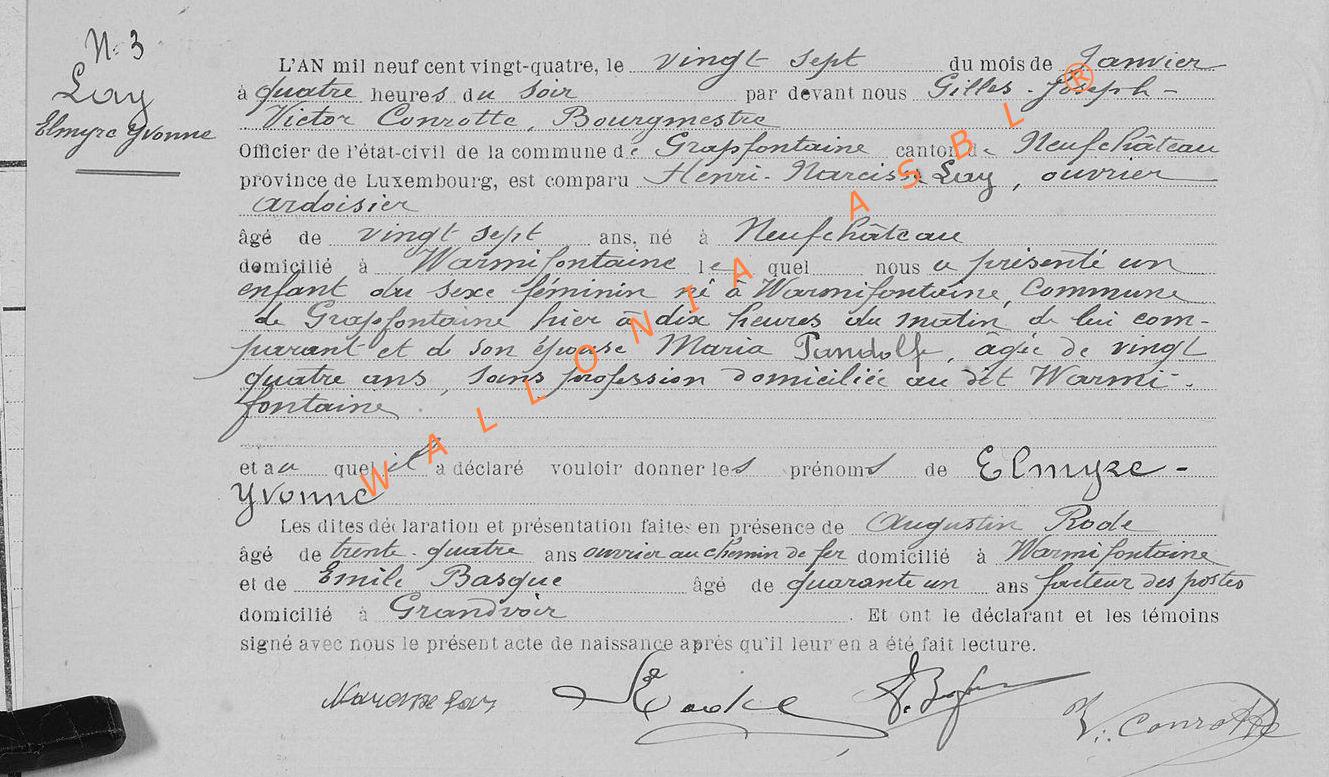 N. 3
Lay
Elmyre Yvonne
L'AN mil neuf cent vingt-quatre, le vingt sept du mois de Janvier
à quatre heures du soir par devant nous Gilles-Joseph-
Victor Conrotte, Bourgmestre
Officier de l'état-civil de la commune de Grapfontaine canton de Neufchâteau
province de Luxembourg, est comparu Henri-Narcisse Lay, ouvrier
ardoisier
âgé de vingt sept ans, né à Neufchâteau
domicilié à Warmifontaine lequel nous a présenté un
enfant du sexe féminin né à Warmifontaine, Commune
de Grapfontaine hier à dix heures du matin de lui com-
parant et de son épouse Maria Pandolf, agée de vingt
quatre ans, sans profession domiciliée au dit Warmi-
fontaine
et au quel il a déclaré vouloir donner les prénoms de Elmyre-
Yvonne
Les dites déclaration et présentation faites en présence de Augustin Rode
âgé de trente-quatre ans ouvrier au chemin de fer domicilié à Warmifontaine
et de Emile Basque âgé de quarante un ans facteur des postes
domicilié à Grandvoir. Et ont le déclarant et les témoins
signé avec nous le présent acte de naissance après qu'il leur en a été fait lecture.
V. Conrotte
WALLONIA ASBL ®